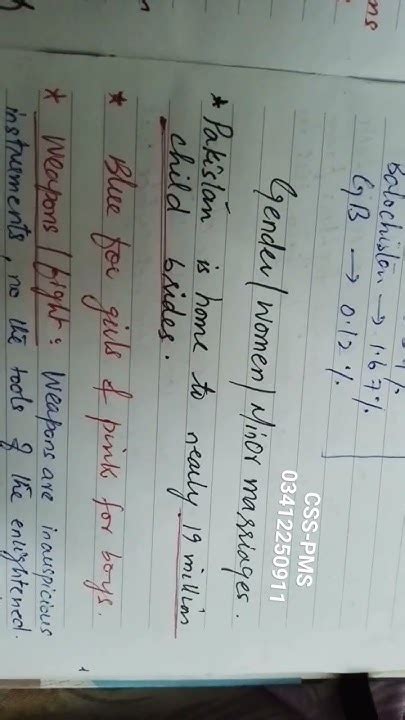 ms
Balochistan → 1.67%
GB → 0.12%
CSS-PMS
03412250911
Gender/Women/Minor marriages.
* Pakistan is home to nearly 19 million
child brides.
* Blue for girls & pink for boys.
* Weapons/fight: Weapons are inauspicious
instruments, no the tools of the enlightened.